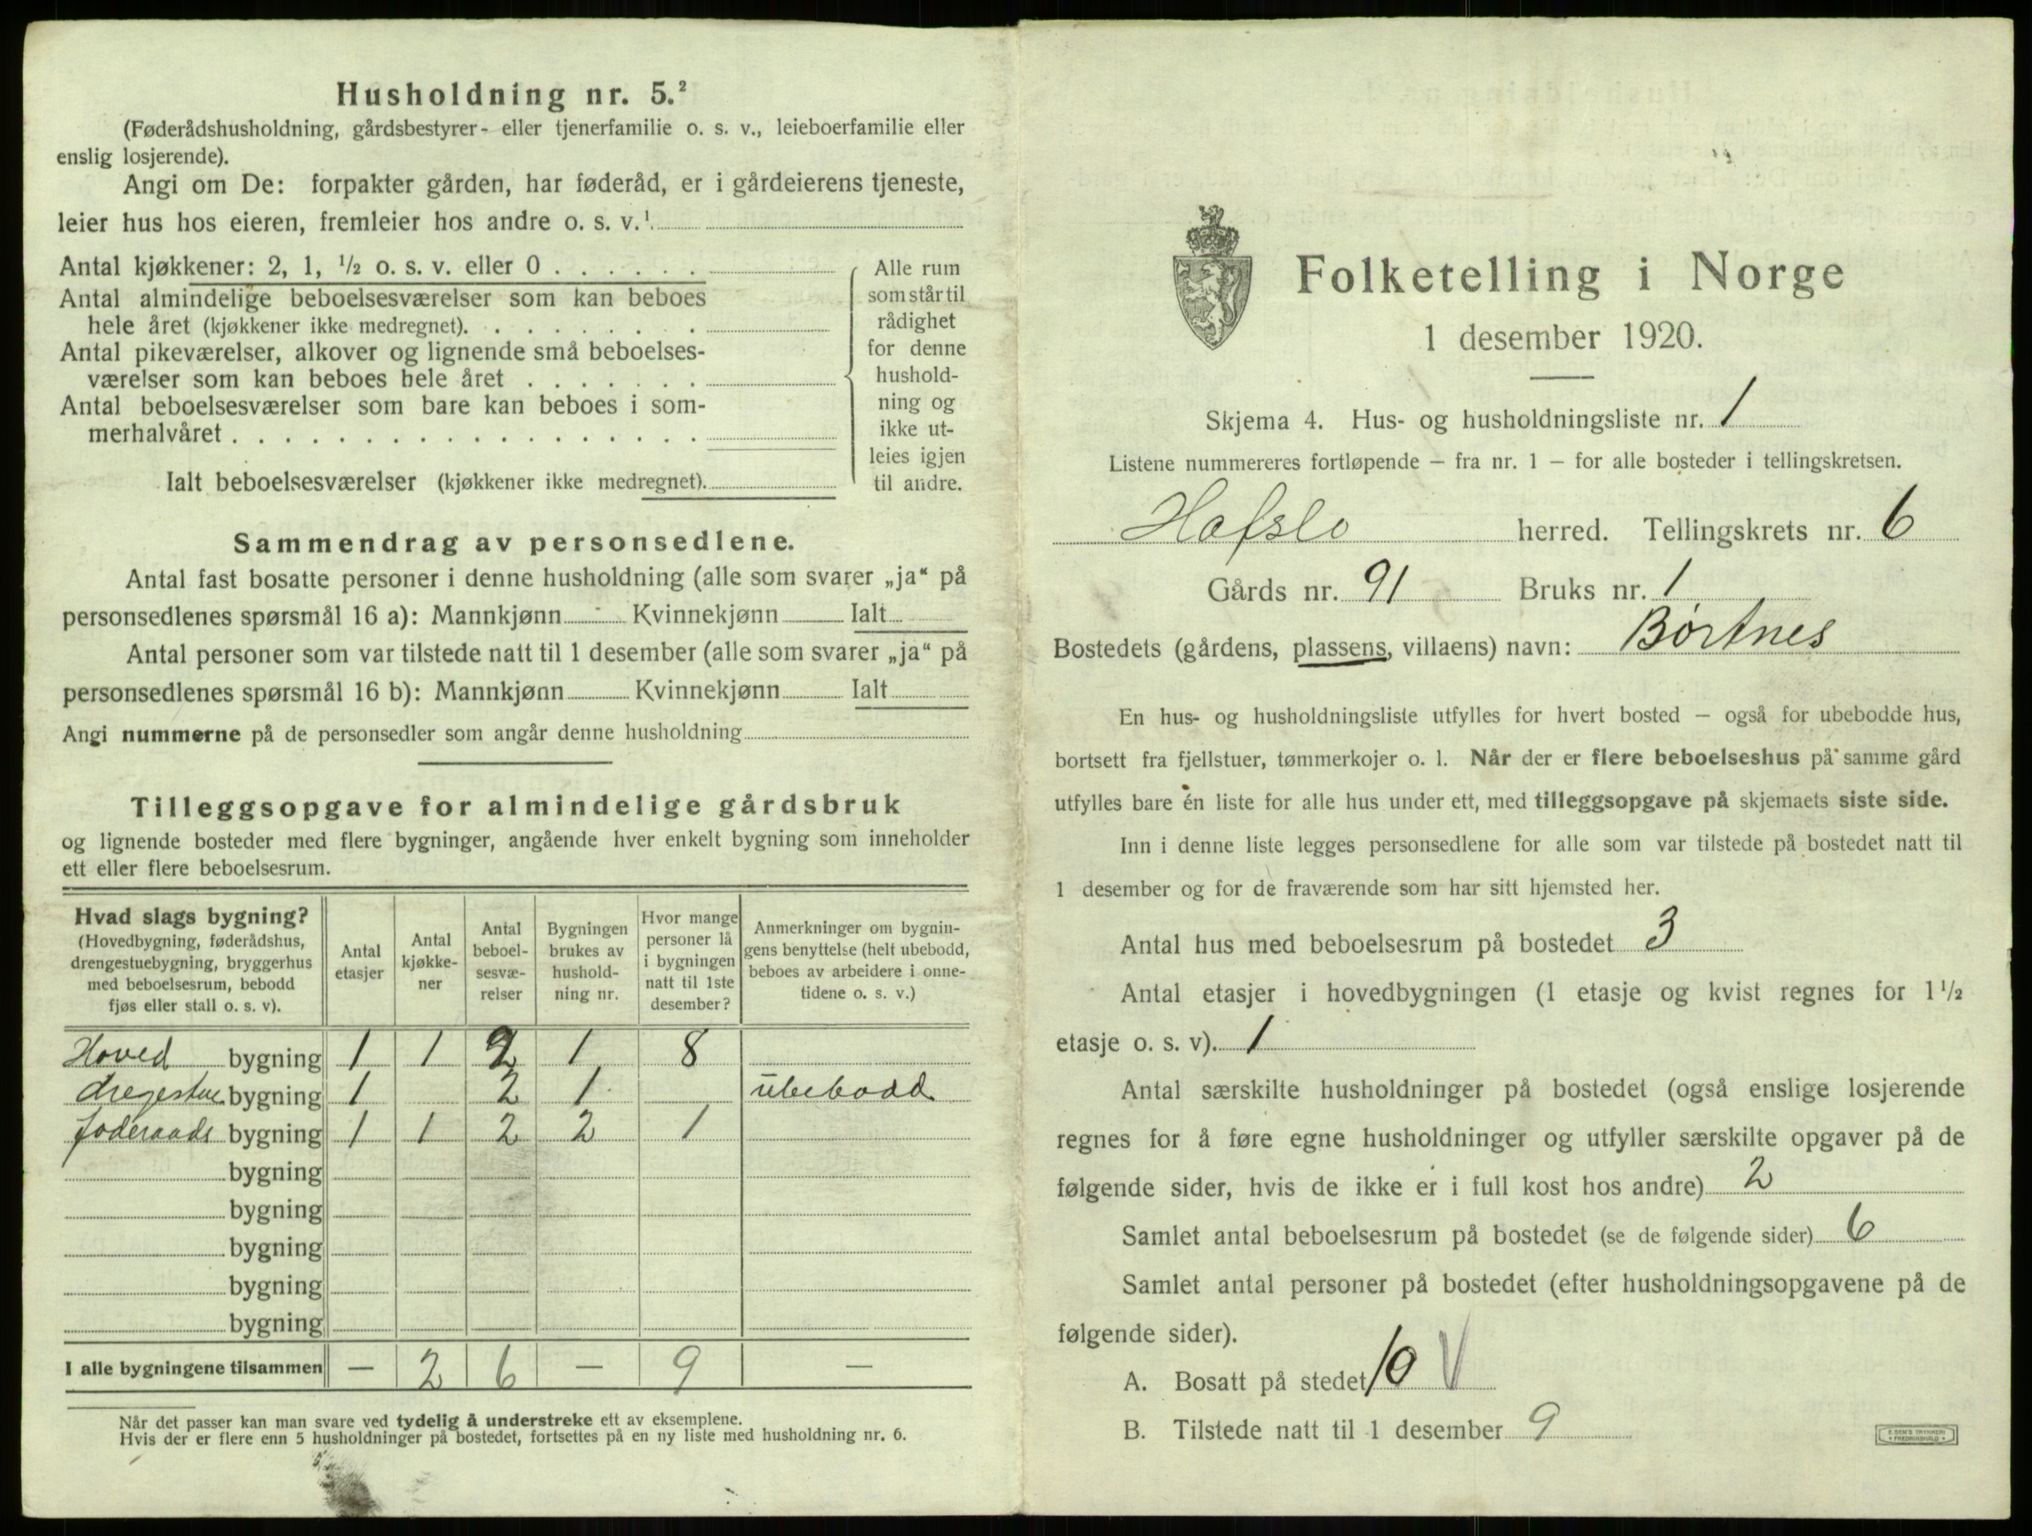 Husholdning nr. 5.²
(Føderådshusholdning, gårdsbestyrer- eller tjenerfamilie o. s. v., leieboerfamilie eller
enslig losjerende).
Angi om De: forpakter gården, har føderåd, er i gårdeierens tjeneste,
leier hus hos eieren, fremleier hos andre o. s. v.¹
Antal kjøkkener: 2, 1, ½ o. s. v. eller 0 . . . . . .
Antal almindelige beboelsesværelser som kan beboes
hele året (kjøkkener ikke medregnet). . . . . . . .
Antal pikeværelser, alkover og lignende små beboelses-
værelser som kan beboes hele året . . . . . . .
Antal beboelsesværelser som bare kan beboes i som-
merhalvåret . . . . . . . . . . . . . . . . .
Ialt beboelsesværelser (kjøkkener ikke medregnet).
Alle rum
som står til
rådighet
for denne
hushold-
ning og
ikke ut-
leies igjen
til andre.
Sammendrag av personsedlene.
Antal fast bosatte personer i denne husholdning (alle som svarer „ja“ på
personsedlenes spørsmål 16 a): Mannkjønn Kvinnekjønn Ialt
Antal personer som var tilstede natt til 1 desember (alle som svarer „ja“ på
personsedlenes spørsmål 16 b): Mannkjønn Kvinnekjønn Ialt
Angi nummerne på de personsedler som angår denne husholdning
Tilleggsopgave for almindelige gårdsbruk
og lignende bosteder med flere bygninger, angående hver enkelt bygning som inneholder
ett eller flere beboelsesrum.
Hvad slags bygning?
(Hovedbygning, føderådshus,
drengestuebygning, bryggerhus
med beboelsesrum, bebodd
fjøs eller stall o. s. v).
Antal
etasjer
Antal
kjøkke-
ner
Antal
beboel-
sesvæ-
relser
Bygningen
brukes av
hushold-
ning nr.
Hvor mange
personer lå
i bygningen
natt til 1ste
desember?
Anmerkninger om bygnin-
gens benyttelse (helt ubebodd,
beboes av arbeidere i onne-
tidene o. s. v.)
Hoved bygning 1 1 2 1 8
dregestue bygning 1 2 1 ubebodd
foderaads bygning 1 1 2 2 1
bygning
bygning
bygning
bygning
bygning
I alle bygningene tilsammen — 2 6 — 9 —
Når det passer kan man svare ved tydelig å understreke ett av eksemplene.
Hvis der er flere enn 5 husholdninger på bostedet, fortsettes på en ny liste med husholdning nr. 6.
Folketelling i Norge
1 desember 1920.
Skjema 4. Hus- og husholdningsliste nr. 1
Listene nummereres fortløpende – fra nr. 1 – for alle bosteder i tellingskretsen.
Hafslo herred. Tellingskrets nr. 6
Gårds nr. 91 Bruks nr. 1
Bostedets (gårdens, plassens, villaens) navn: Børtnes
En hus- og husholdningsliste utfylles for hvert bosted – også for ubebodde hus,
bortsett fra fjellstuer, tømmerkojer o. l. Når der er flere beboelseshus på samme gård
utfylles bare én liste for alle hus under ett, med tilleggsopgave på skjemaets siste side.
Inn i denne liste legges personsedlene for alle som var tilstede på bostedet natt til
1 desember og for de fraværende som har sitt hjemsted her.
Antal hus med beboelsesrum på bostedet 3
Antal etasjer i hovedbygningen (1 etasje og kvist regnes for 1 ½
etasje o. s. v). 1
Antal særskilte husholdninger på bostedet (også enslige losjerende
regnes for å føre egne husholdninger og utfyller særskilte opgaver på de
følgende sider, hvis de ikke er i full kost hos andre) 2
Samlet antal beboelsesrum på bostedet (se de følgende sider) 6
Samlet antal personer på bostedet (efter husholdningsopgavene på de
følgende sider).
A. Bosatt på stedet 10 V
B. Tilstede natt til 1 desember 9